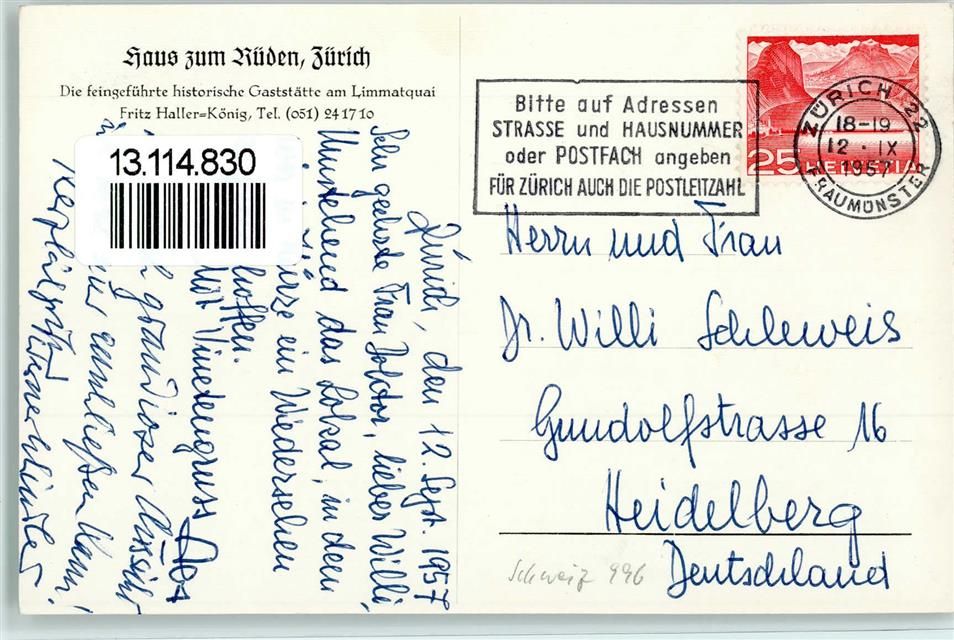 Haus zum Rüden, Zürich
Die feingeführte historische Gaststätte am Limmatquai
Fritz Haller=König, Tel. (051) 24 17 10
13.114.830
Zürich, den 12. Sept. 1957
Sehr geehrte Frau Doktor, lieber Willi,
Umstehend das Lokal, in dem
in Kürze ein Wiedersehen
hoffen.
Mit
grandioser Aussicht
anschließen kann!
Herzlichst
Bitte auf Adressen
STRASSE und HAUSNUMMER
oder POSTFACH angeben
FÜR ZÜRICH AUCH DIE POSTLEITZAHL
25 HELVETIA
ZÜRICH 22
18-19
12 · IX
1957
FRAUMÜNSTER
Herrn und Frau
Dr. Willi Schleweis
Gundolfstrasse 16
Heidelberg
Deutschland
Schweiz 996